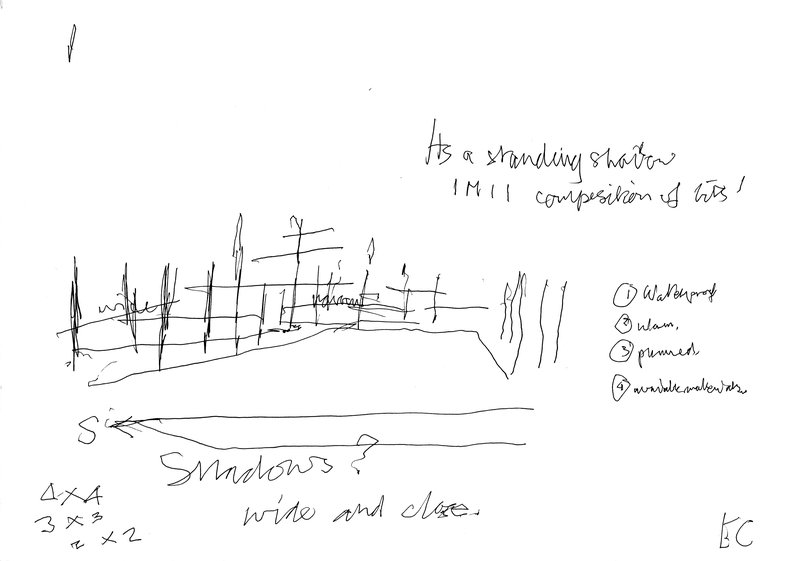 As a standing shadow
composition of bits'
wide
① Waterproof
②
③ planned
④ available materials.
S
Shadows?
wide and close.
4 x 4
3 x 3
2 x 2
EC